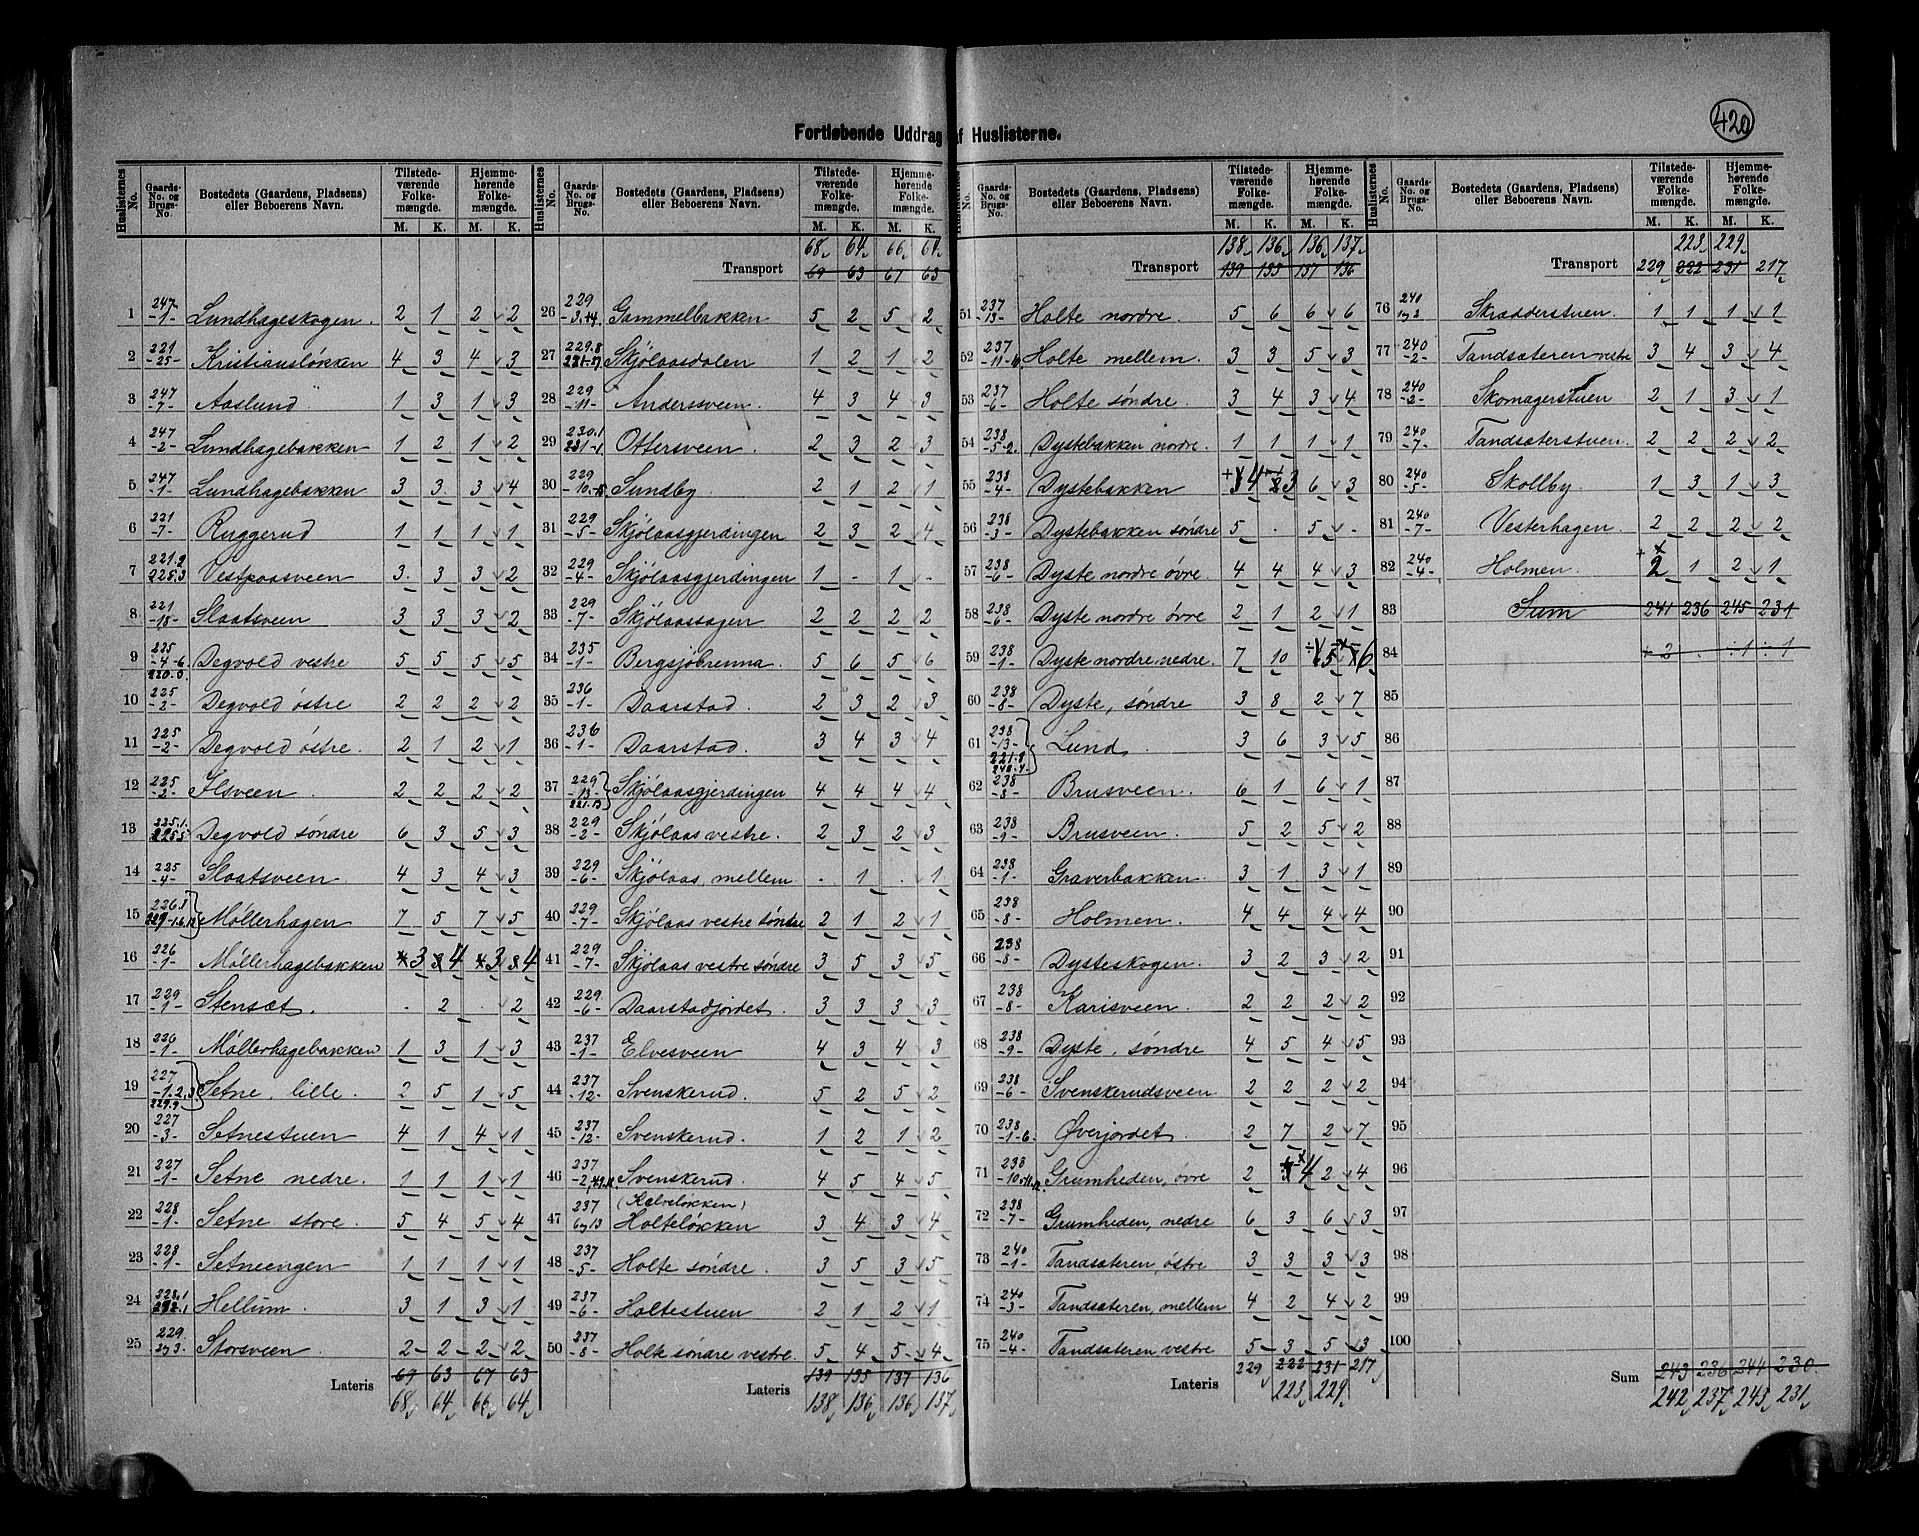 420
Fortløbende Uddrag af Huslisterne.
Huslisternes No. Gaards-No. og Brugs-No. Bostedets (Gaardens, Pladsens) eller Beboerens Navn. Tilstede-værende Folke-mængde. Hjemme-hørende Folke-mængde.
M. K. M. K.
1 247 -1- Lundhageskogen. 2 1 2 2
2 221 -25- Kristiansløkken 4 3 4 3
3 247 -7- Aaslund 1 3 1 3
4 247 -2- Lundhagebakken 1 2 1 2
5 247 -1- Lundhagebakken 3 3 3 4
6 221 -7- Ruggerud 1 1 1 1
7 221.2 225.3 Vestpaasveen 3 3 3 2
8 221 -18- Slaatsveen 3 3 3 2
9 225 -4-6 Degvold vestre 5 5 5 5
10 225 -2- Degvold østre 2 2 2 2
11 225 -2- Degvold østre. 2 1 2 1
12 225 -2- Ilsveen. 2 2 2 2
13 225.1. 225.5 Degvold søndre 6 3 5 3
14 225 -4- Slaatsveen 4 3 4 3
15 Møllerhagen 7 5 7 5
16 226 -1- Møllerhagebakken 3 4 3 4
17 229 -1- Stensæt. . 2 . 2
18 226 -1- Møllerhagebakken 1 3 1 3
19 227 -1.2.3 229.9 Setne, lille. 2 5 1 5
20 227 -3- Setnestuen 4 1 4 1
21 227 -1- Setne nedre. 1 1 1 1
22 228 -1- Setne store. 5 4 5 4
23 228 -1- Setneengen 1 1 1 1
24 228.1 Hellum. 3 1 3 1
25 229. 2og3. Storsveen 2 2 2 2
Lateris 69 63 67 63
68 64 66 64
Huslisternes No. Gaards-No. og Brugs-No. Bostedets (Gaardens, Pladsens) eller Beboerens Navn. Tilstede-værende Folke-mængde. Hjemme-hørende Folke-mængde.
M. K. M. K.
68 64 66 64
Transport 69 63 67 63
26 229 -3.+4. Gammelbakken 5 2 5 2
27 229.8 Skjølaasdalen 1 2 1 2
28 229 -11- Andersveen. 4 3 4 3
29 230.1 231-1. Ottersveen. 2 3 2 3
30 229 Sundby. 2 1 2 1
31 229 -5- Skjølaasgjerdingen 2 3 2 4
32 229 -4- Skjølaasgjerdingen 1 - 1 -
33 229 -7- Skjølaassagen 2 2 2 2
34 235 -1- Bergsjøbrenna. 5 6 5 6
35 236 -1- Daarstad. 2 3 2 3
36 236 -1- Daarstad. 3 4 3 4
37 229 -13- 221.13 Skjølaasgjerdingen 4 4 4 4
38 229 -2- Skjølaas vestre. 2 3 2 3
39 229 -6- Skjølaas, mellem . 1 . 1
40 229 -7- Skjølaas vestre søndre 2 1 2 1
41 229 -7- Skjølaas vestre søndre 3 5 3 5
42 229. -6- Daarstadjordet. 3 3 3 3
43 237 -1- Elvesveen 4 3 4 3
44 237 -12- Svenskerud. 5 2 5 2
45 237 -12- Svenskerud. 1 2 1 2
46 237 Svenskerud. 4 5 4 5
(Kalveløkken)
47 237 6og13 Holteløkken 3 4 3 4
48 237 -5- Holte søndre. 3 5 3 5
49 237 -6- Holtestuen 2 1 2 1
50 237 -8- Holte søndre vestre. 5 4 5 4
Lateris 139 135 137 136
138 136 136 137
Gaards-No. og Brugs-No. Bostedets (Gaardens, Pladsens) eller Beboerens Navn. Tilstede-værende Folke-mængde. Hjemme-hørende Folke-mængde.
M. K. M. K.
138 136 136 137
Transport 139 135 137 136
51 237 -13- Holte nordre. 5 6 6 6
52 237 Holte mellem. 3 3 5 3
53 237 -6- Holte søndre. 3 4 3 4
54 238 -5-2. Dystebakken nordre. 1 1 1 1
55 238 -4- Dystebakken 4 3 6 3
56 238 -3- Dystebakken søndre 5 . 5 -
57 238 -6- Dyste nordre øvre. 4 4 4 3
58 238 -6- Dyste nordre øvre 2 1 2 1
59 238 -1- Dyste nordre, nedre. 7 10 5 6
60 238 -8- Dyste, søndre 3 8 2 7
61 238 -13- 221.8 240.4. Lund. 3 6 3 5
62 238 -8- Brusveen. 6 1 6 1
63 238 -9- Brusveen. 5 2 5 2
64 238 -1- Graverbakken. 3 1 3 1
65 238 -8- Holmen. 4 4 4 4
66 238 -8- Dysteskogen. 3 2 3 2
67 238 -8- Karisveen. 2 2 2 2
68 238 -9- Dyste, søndre 4 5 4 5
69 238 -6- Svenskerudsveen. 2 2 2 2
70 238 -1-6. Øverjordet. 2 7 2 7
71 238 Grumheden, øvre 2 4 2 4
72 238 -7- Grumheden, nedre 6 3 6 3
73 240 -1- Tandsæteren, østre 3 3 3 3
74 240 -3- Tandsæteren, mellem 4 2 4 2
75 240 -4- Tandsæteren vestre 5 3 5 3
Lateris 229 222 231 217
223 229
Huslisternes No. Gaards-No. og Brugs-No. Bostedets (Gaardens, Pladsens) eller Beboerens Navn. Tilstede-værende Folke-mængde. Hjemme-hørende Folke-mængde.
M. K. M. K.
223 229
Transport 229 222 231 217
76 240 1og2 Skrædderstuen. 1 1 1 1
77 240 -2- Tandsæteren vestre 3 4 3 4
78 240 -2- Skomagerstuen 2 1 3 1
79 240 -7- Tandsæterstuen. 2 2 2 2
80 240 -5- Skolby. 1 3 1 3
81 240 -7- Vesterhagen. 2 2 2 2
82 240 -4- Holmen. 2 1 2 1
83 Sum 241 236 245 231
84 + 2 . ÷1 ÷1
85
86
87
88
89
90
91
92
93
94
95
96
97
98
99
100
Sum 243 236 244 230
242 237 243 231